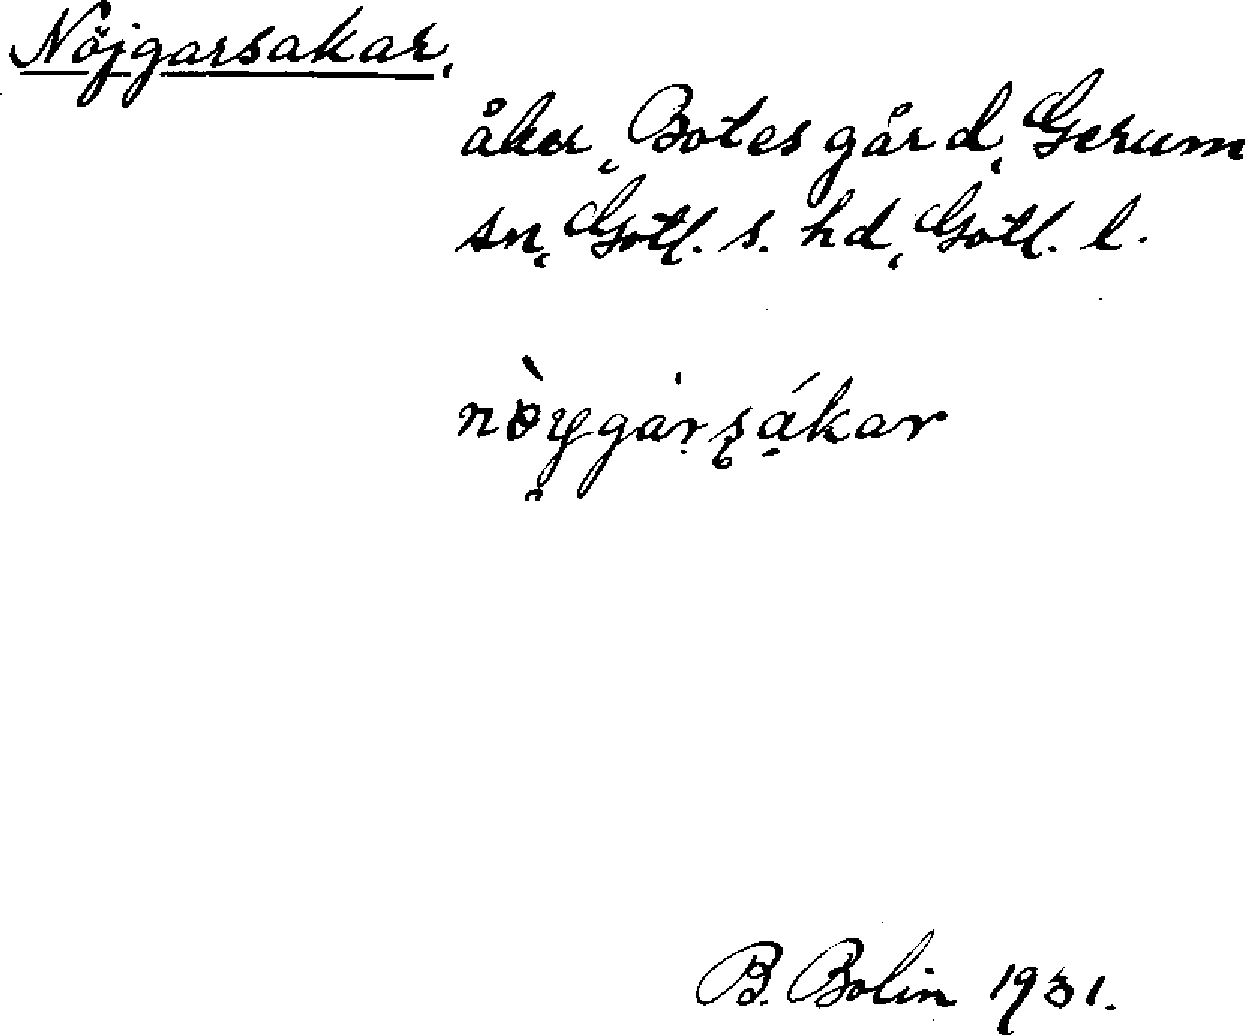 Nöjgarsakar,
åker, Botes gård, Gerum
sn, Gotl. s. hd, Gotl. l.
nòygarsákar
B. Bolin 1931.